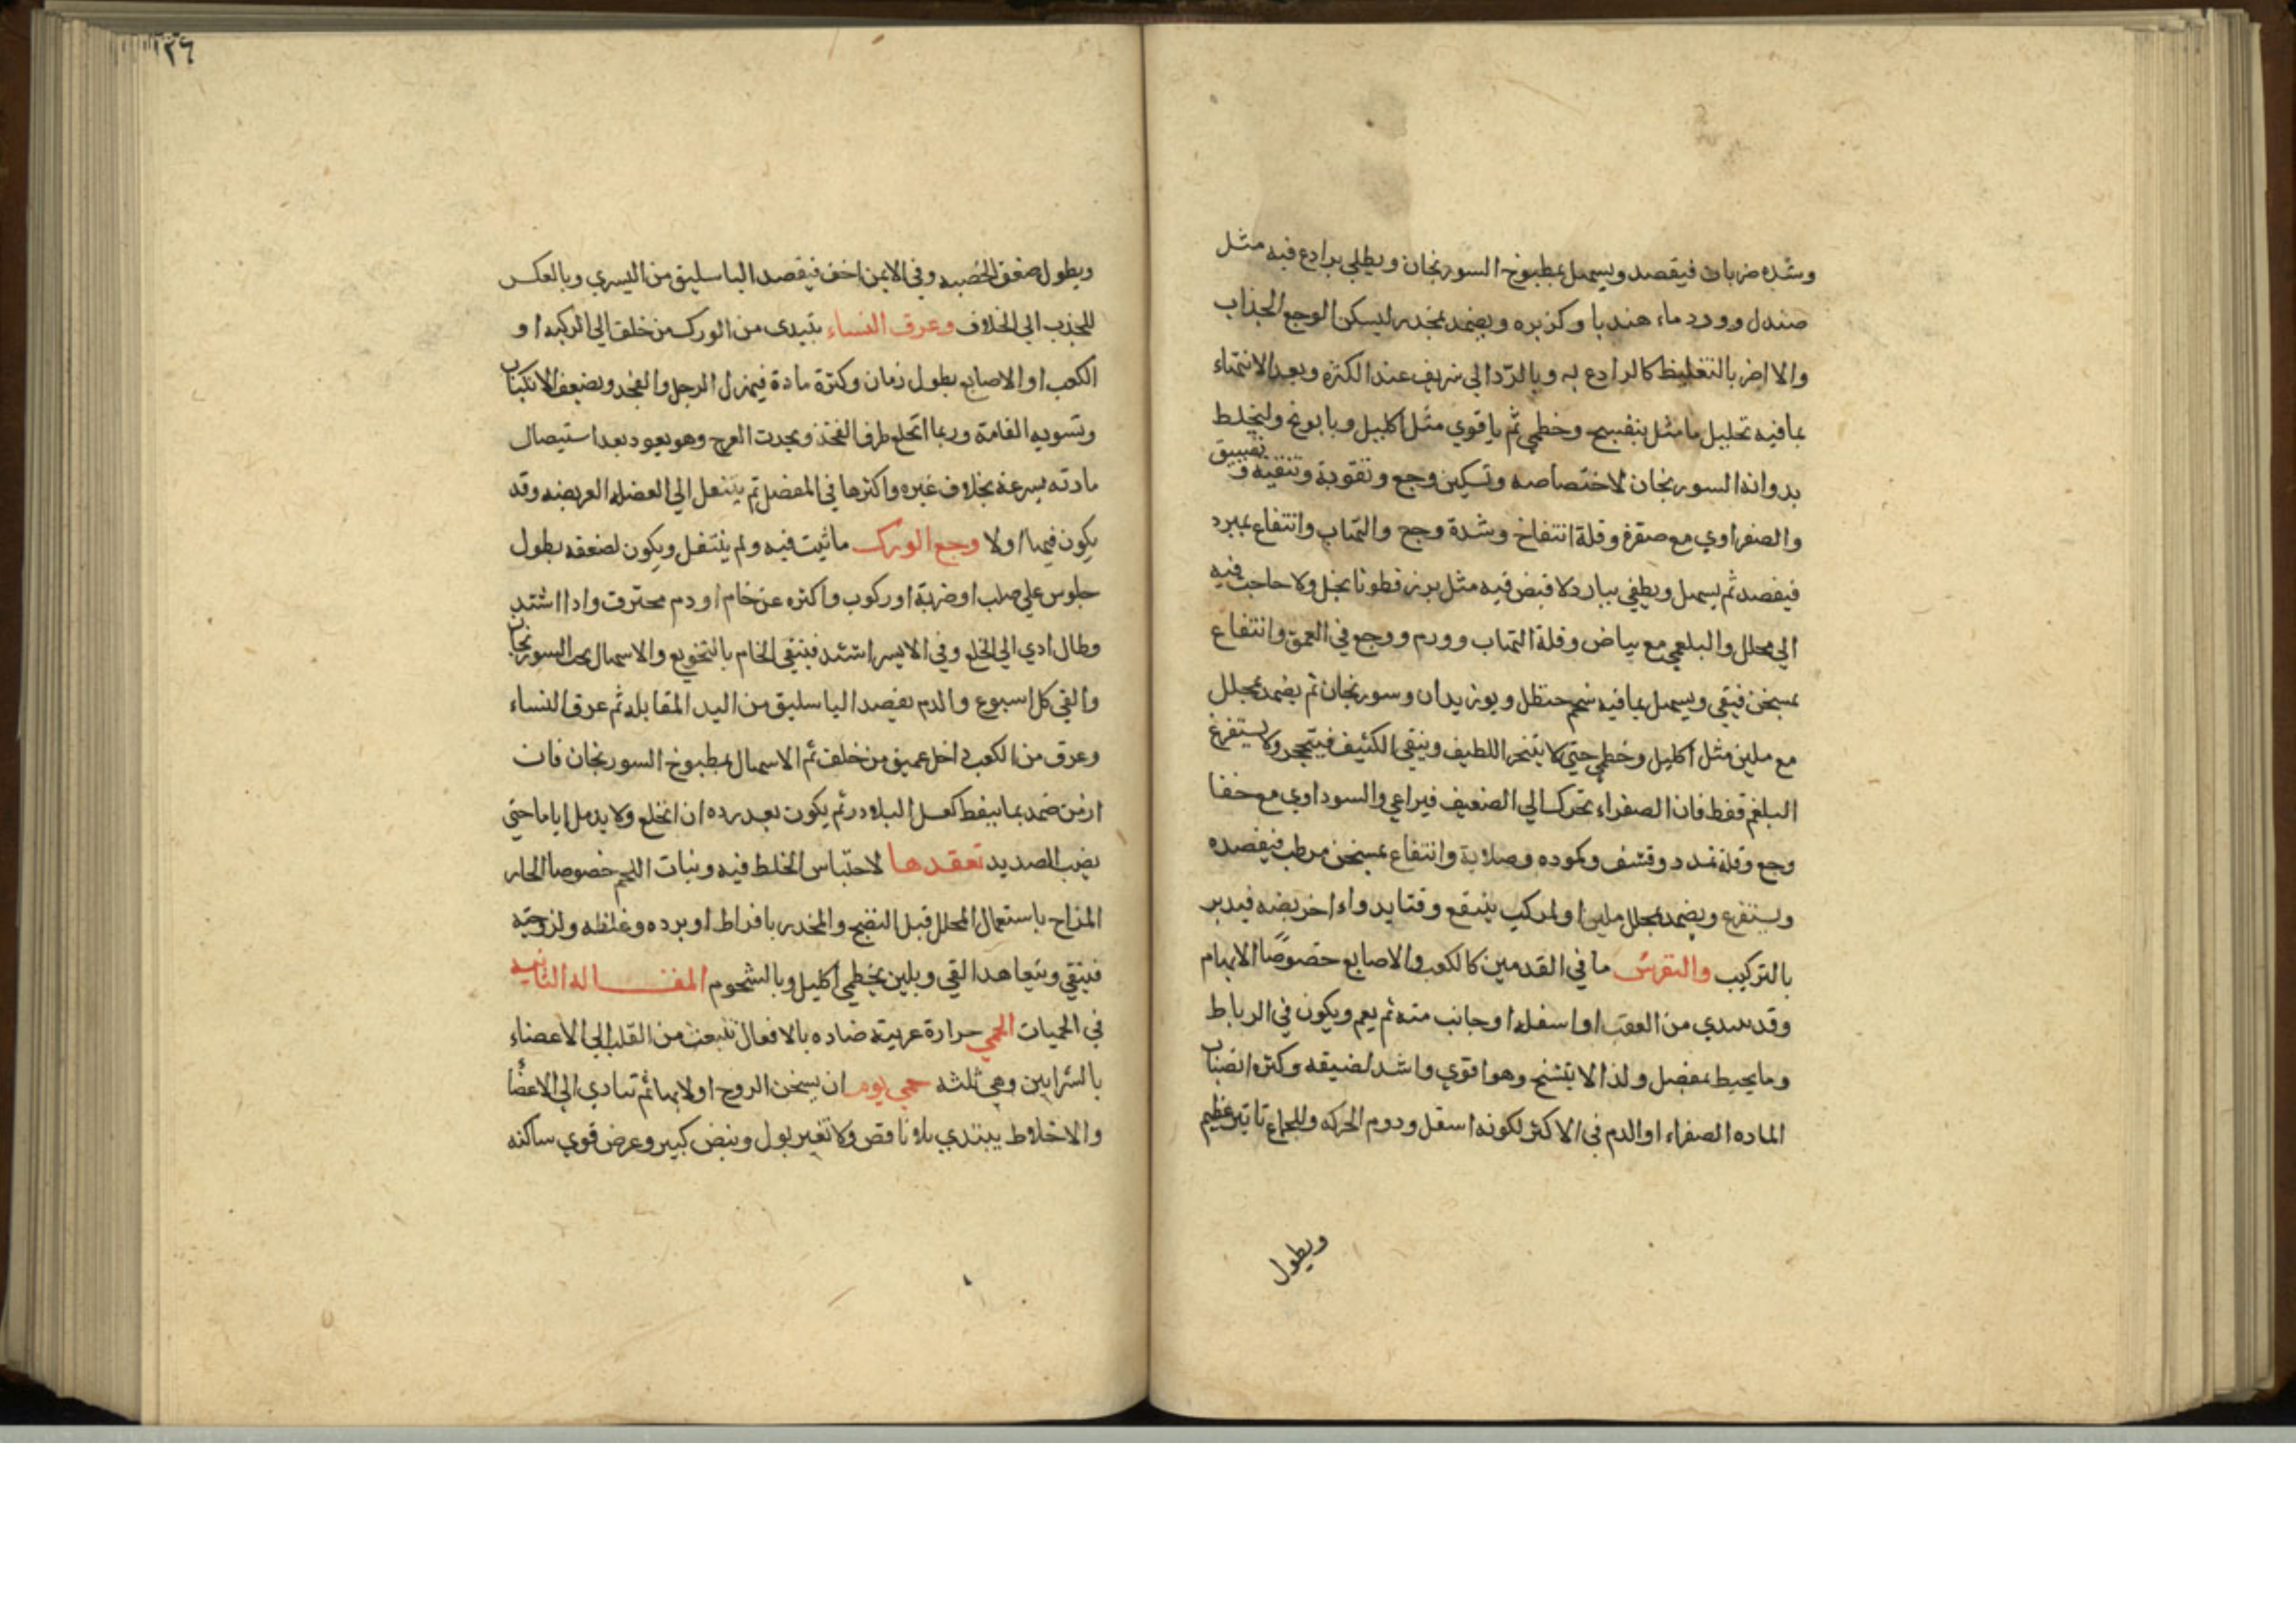 وشده ضربان فيفصد ويسهل بمطبوخ السورنجان ويطلي برادع فيه مثل
صندل وورد ماء هندبا وكزبره ويضمد بمخدر ليسكن الوجع الجذاب
والا اضر بالتغليظ كالرادع به وبالرد الي شريف عند الكثره وبعد الانتهاء
بمافيه تحليل ما مثل بنفسج وخطمي ثم باقوي مثل اكليل وبابونج وليخلط
بدوائه السورنجان لاختصاصه وتسكين وجع وتقوية وتنقية و تضييق
والصفراوي مع صفرة وقلة انتفاخ وشدة وجع والتهاب وانتفاع بمبرد
فيفصد ثم يسهل ويطفي ببارد لا قبض فيه مثل بزر قطونا بخل ولا حاجت فيه
الي محلل والبلغمي مع بياض وقلة التهاب وورم ووجع في العمق وانتفاع
بمسخن فيقي ويسهل بمافيه شحم حنظل وبوزيدان وسورنجان ثم يضمد بمحلل
مع ملين مثل اكليل وخطمي حتي لا يتبخر اللطيف ويبقي الكثيف فيتحجر ولا يستفرغ
البلغم فقط فان الصفراء تحرك الي الضعيف فيراعي والسوداوي مع خفا
وجع وقلة تمدد وقشف وكموده وصلابة وانتفاع بمسخن مرطب فيفصده
ويستفرغ ويضمد بمحلل ملين والمركب ينتفع وقتا بدواء اخر يضه فيدبر
بالتركيب والنقرس ما في القدمين كالكعب والاصابع خصوصًا الابهام
وقد يبتدي من العقب او اسفله او جانب منه ثم يعم ويكون في الرباط
وما يحيط بمفصل ولذا لا يتشنج وهو اقوي واشد لضيقه وكثره انصباب
الماده الصفراء او الدم في الاكثر لكونه اسفل ودوم الحركه وللجماع تاثير عظيم
ويطول
١٢٦
ويطول ضعف الخصيه وفي الايمن اخف فيفصد الباسليق من اليسري وبالعكس
للجذب الي الخلاف وعرق النساء يبتدي من الورك من خلف الي الركبه او
الكعب او الاصابع بطول زمان وكثرة مادة فيهزل الرجل والفخد ويضعف الانكباب
وتسويه القامة وربما انخلع طرف الفخذ ويحدث العرج وهو يعود بعد استيصال
مادته بسرعة بخلاف غيره واكثرها في المفصل ثم ينتقل الي العضله العريضه وقد
يكون فيها اولا وجع الورك ما ثبت فيه ولم ينتقل ويكون لضعفه بطول
جلوس علي صلب او ضربة او ركوب واكثره عن خام او دم محترق واذا اشتد
وطال ادي الي الخلع وفي الايسر اشد فينقي الخام بالتجويع والاسهال بحب السورنجان
والقي كل اسبوع والدم بفصد الباسليق من اليد المقابله ثم عرق النساء
وعرق من الكعب داخل عميق من خلف ثم الاسهال بمطبوخ السورنجان فان
ازمن ضمد بما ينفط كعسل البلادر ثم يكون بعد رده ان انخلع ولا يدمل اياما حتي
يصب الصديد تعقدها لاحتباس الخلط فيه ونبات اللحم خصوصا الحار
المزاج باستعمال المحلل قبل النضج والمخدر بافراط او برده وغلظه ولزوجته
فينقي ويتعاهد القي ويلين بخطمي اكليل وبالشحوم المقاله الثانيه
في الحميات الحمي حرارة غريبة ضاده بالافعال تنبعث من القلب الي الاعضاء
بالشرايين وهي ثلثه حمي يوم ان يسخن الروح اولا بها ثم تتادي الي الاعضا
والاخلاط يبتدي بلا نافض ولا تغير بول ونبض كبير وعرض قوي ساكنه